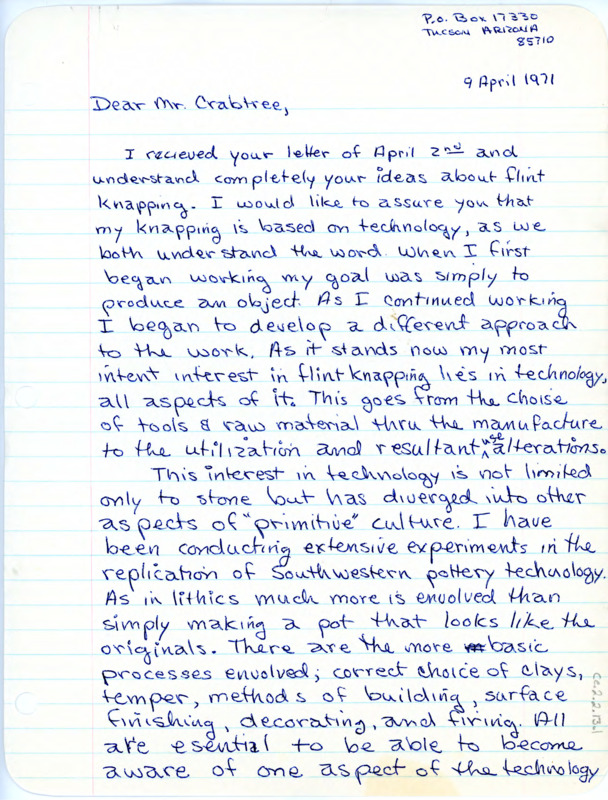 P.O. Box 17330
TUCSON ARIZONA
85710
9 April 1971
Dear Mr. Crabtree,
I recieved your letter of April 2nd and
understand completely your ideas about flint
Knapping. I would like to assure you that
my knapping is based on technology, as we
both understand the word. When I first
began working my goal was simply to
produce an object. As I continued working
I began to develop a different approach
to the work. As it stands now my most
intent interest in flintknapping lies in technology,
all aspects of it. This goes from the choise
of tools & raw material thru the manufacture
to the utilization and resultant use alterations.
This interest in technology is not limited
only to stone but has diverged into other
aspects of "primitive" culture. I have
been conducting extensive experiments in the
replication of Southwestern pottery technology.
As in lithics much more is envolved than
simply making a pot that looks like the
originals. There are the more basic
processes envolved; correct choice of clays,
temper, methods of building, surface
finishing, decorating, and firing. All
are esential to be able to become
aware of one aspect of the technology
cc.2.2.13.1